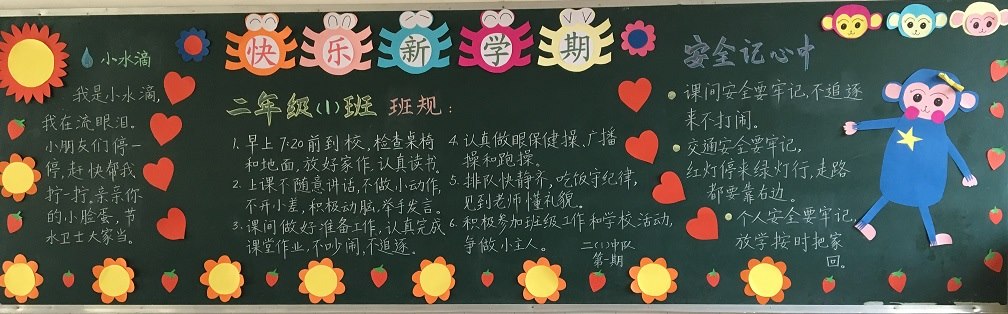 快乐新学期
小水滴
我是小水滴,
我在流眼泪。
小朋友们停一
停,赶快帮我
拧一拧,亲亲你
的小脸蛋,节
水卫士大家当。
二年级(1)班 班规:
1.早上7:20前到校,检查桌椅
和地面,放好家作,认真读书。
2.上课不随意讲话,不做小动作,
不开小差,积极动脑,举手发言。
3.课间做好准备工作,认真完成
课堂作业,不吵闹,不追逐。
4.认真做眼保健操、广播
操和跑操。
5.排队快静齐,吃饭守纪律,
见到老师懂礼貌。
6.积极参加班级工作和学校活动,
争做小主人。
二(1)中队
第一期
安全记心中
课间安全要牢记,不追逐
来不打闹。
交通安全要牢记,
红灯停来绿灯行,走路
都要靠右边。
个人安全要牢记,
放学按时把家
回。